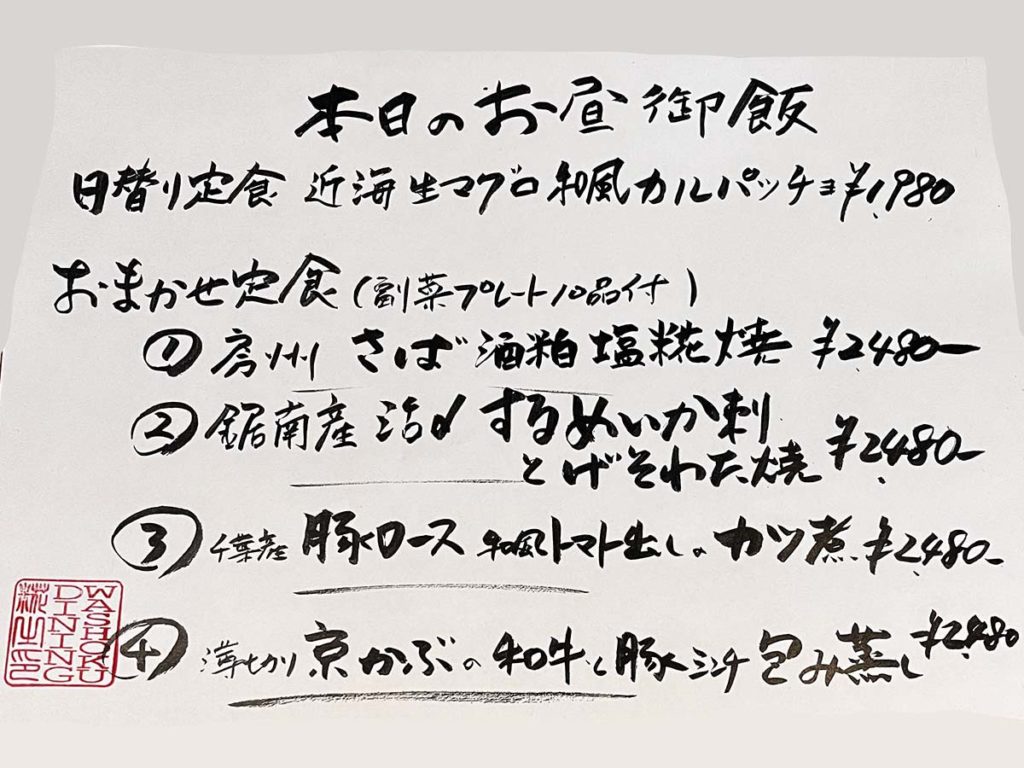 本日のお昼御飯
日替り定食 近海生マグロ和風カルパッチョ ¥1,980
おまかせ定食(副菜プレート10品付)
① 房州 さば酒粕塩糀焼 ¥2,480-
② 鋸南産 活〆 するめいか刺
とげそわた焼 ¥2,480-
③ 千葉産 豚ロース 和風トマト出しのカツ煮 ¥2,480-
④ 薄切り 京かぶの和牛と豚ミンチ包み蒸し ¥2,480
WASHOKU
DINING